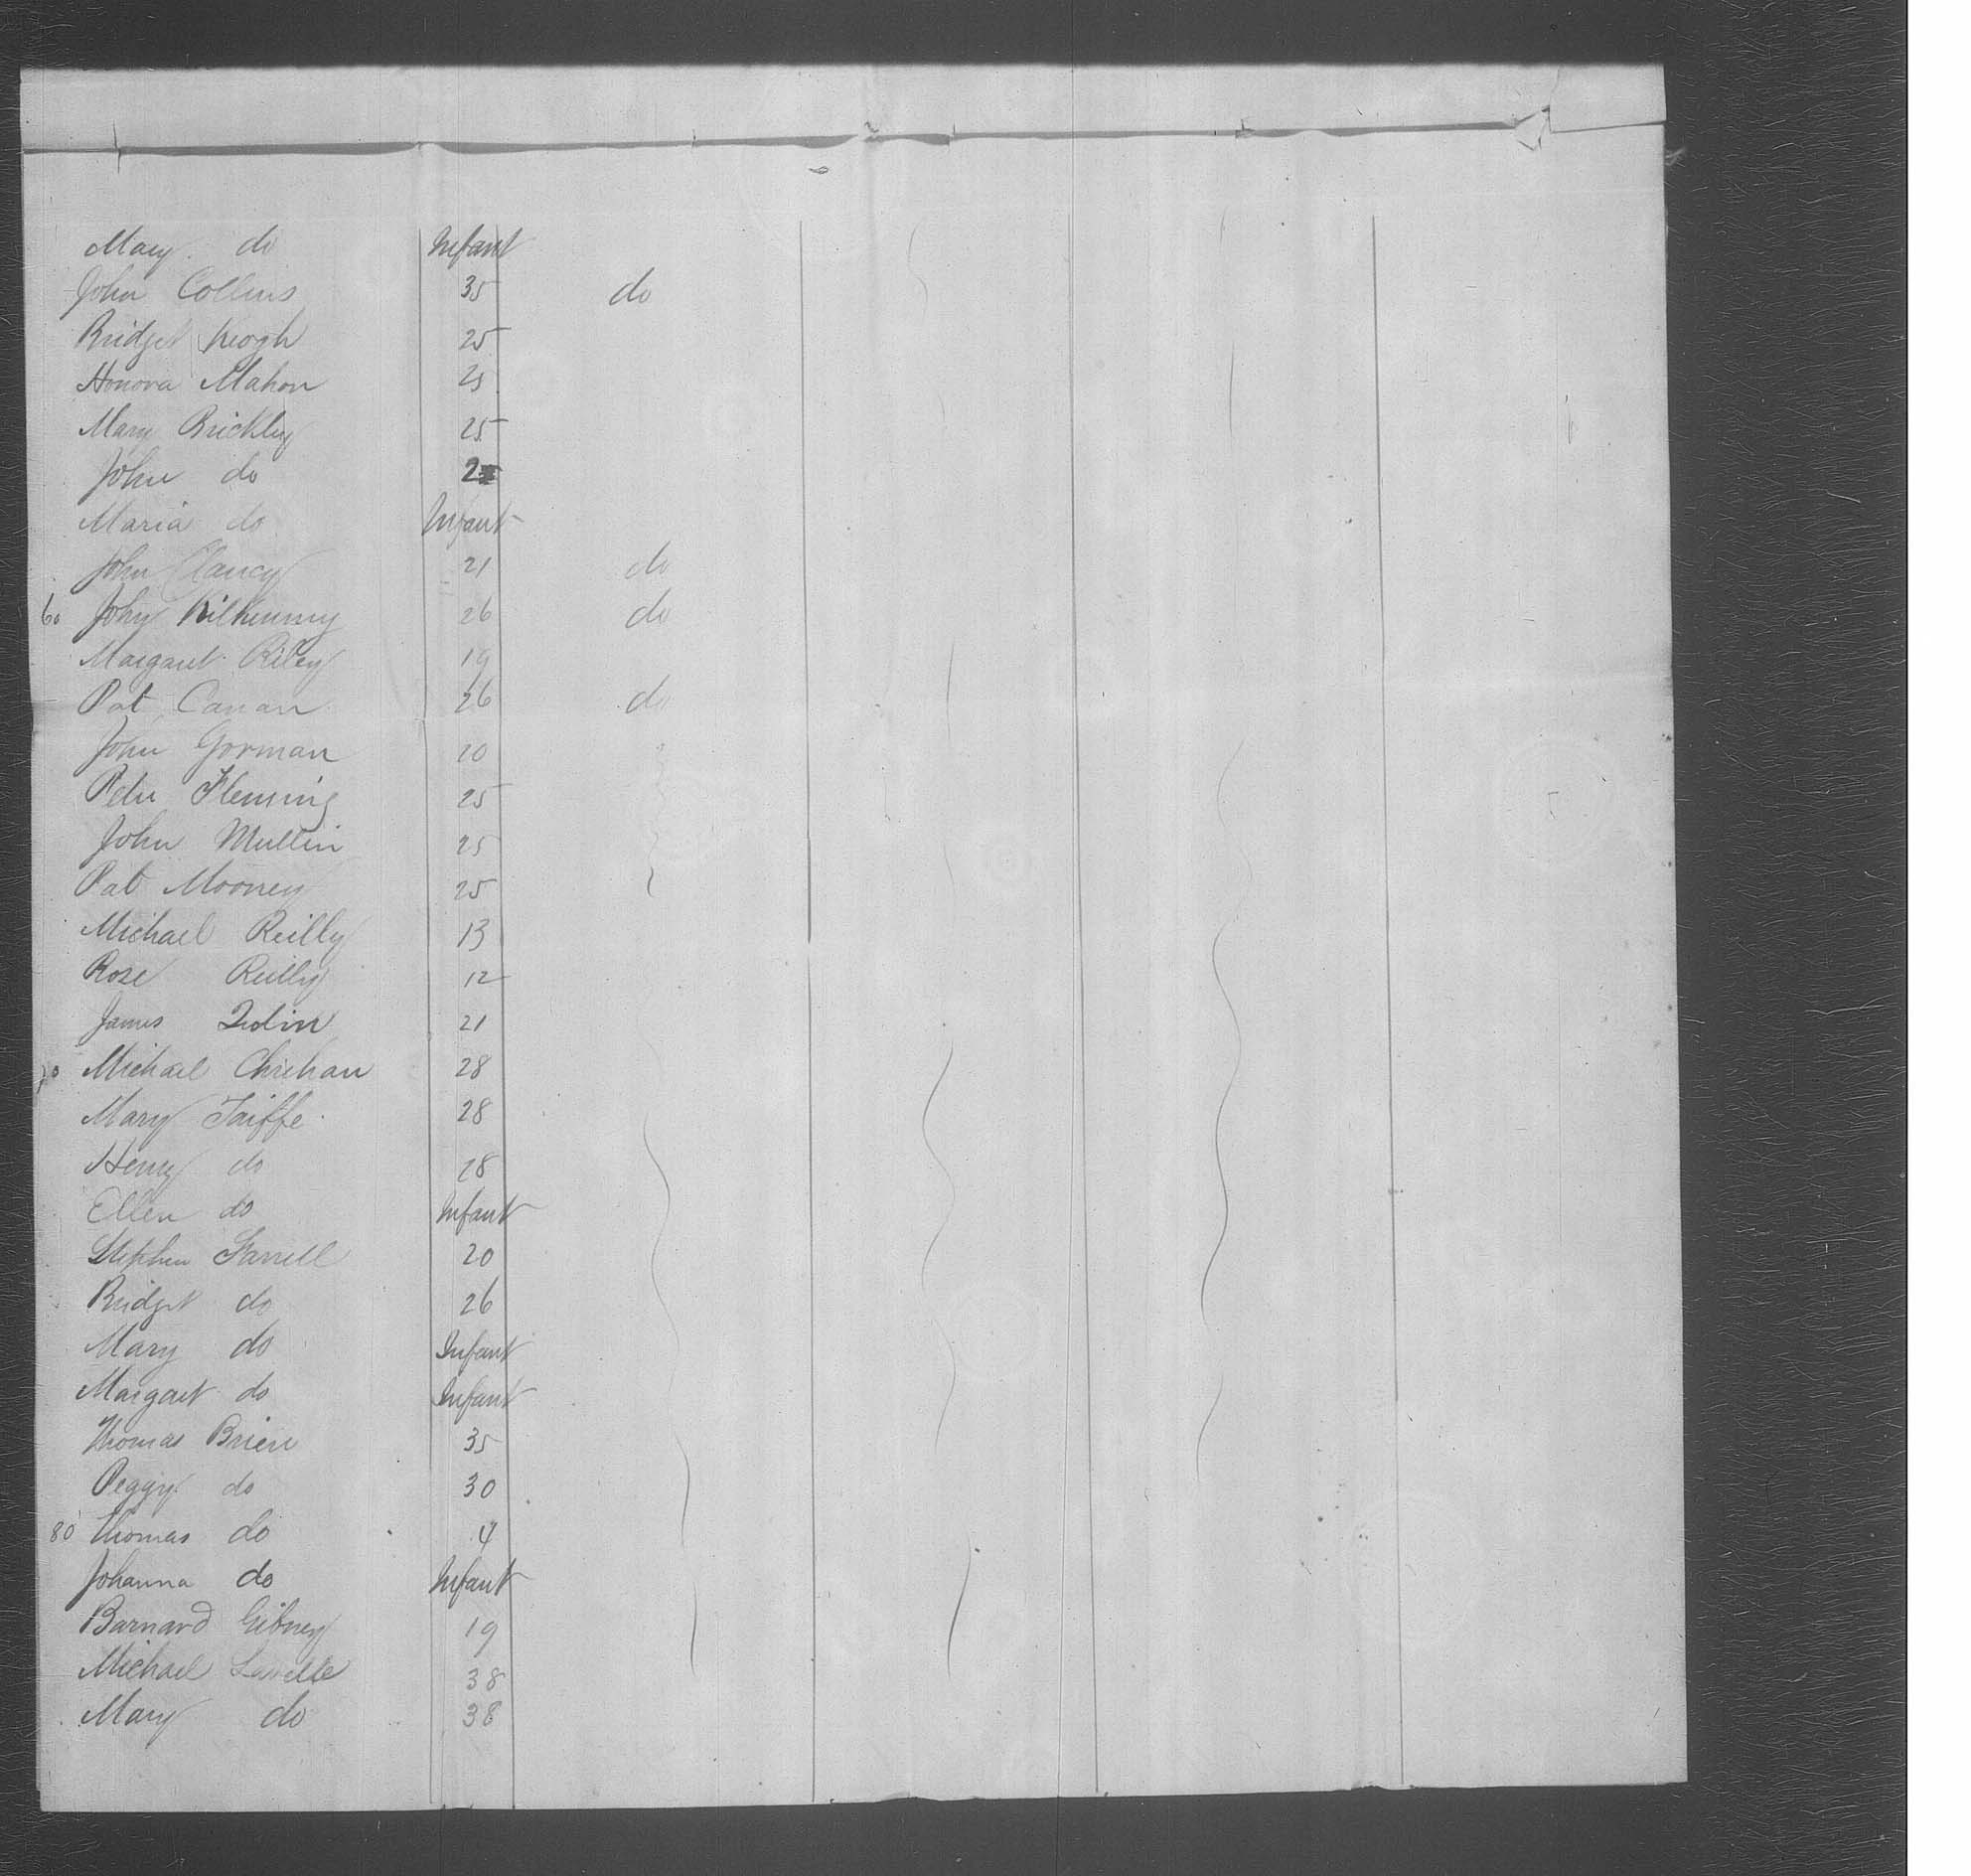 Mary do Infant
John Collins 35 do
Bridget Keogh 25
Honora Mahon 25
Mary Brickley 25
John do
Maria do Infant
John Clancy 21 do
60 John Kilkenny 26 do
Margaret Riley 19
Pat Canan 26 do
John Gorman 20
Peter Fleming 25
John Mullin 25
Pat Mooney 25
Michael Reilly 13
Rose Reilly 12
James 21
70 Michael 28
Mary Taiffe 28
Henry do 28
Ellen do Infant
Stephen Farrell 20
Bridget do 26
Mary do Infant
Margaret do Infant
Thomas Brien 35
Peggy do 30
80 Thomas do 4
Johanna do Infant
Barnard Gibney 19
Michael 38
Mary do 38